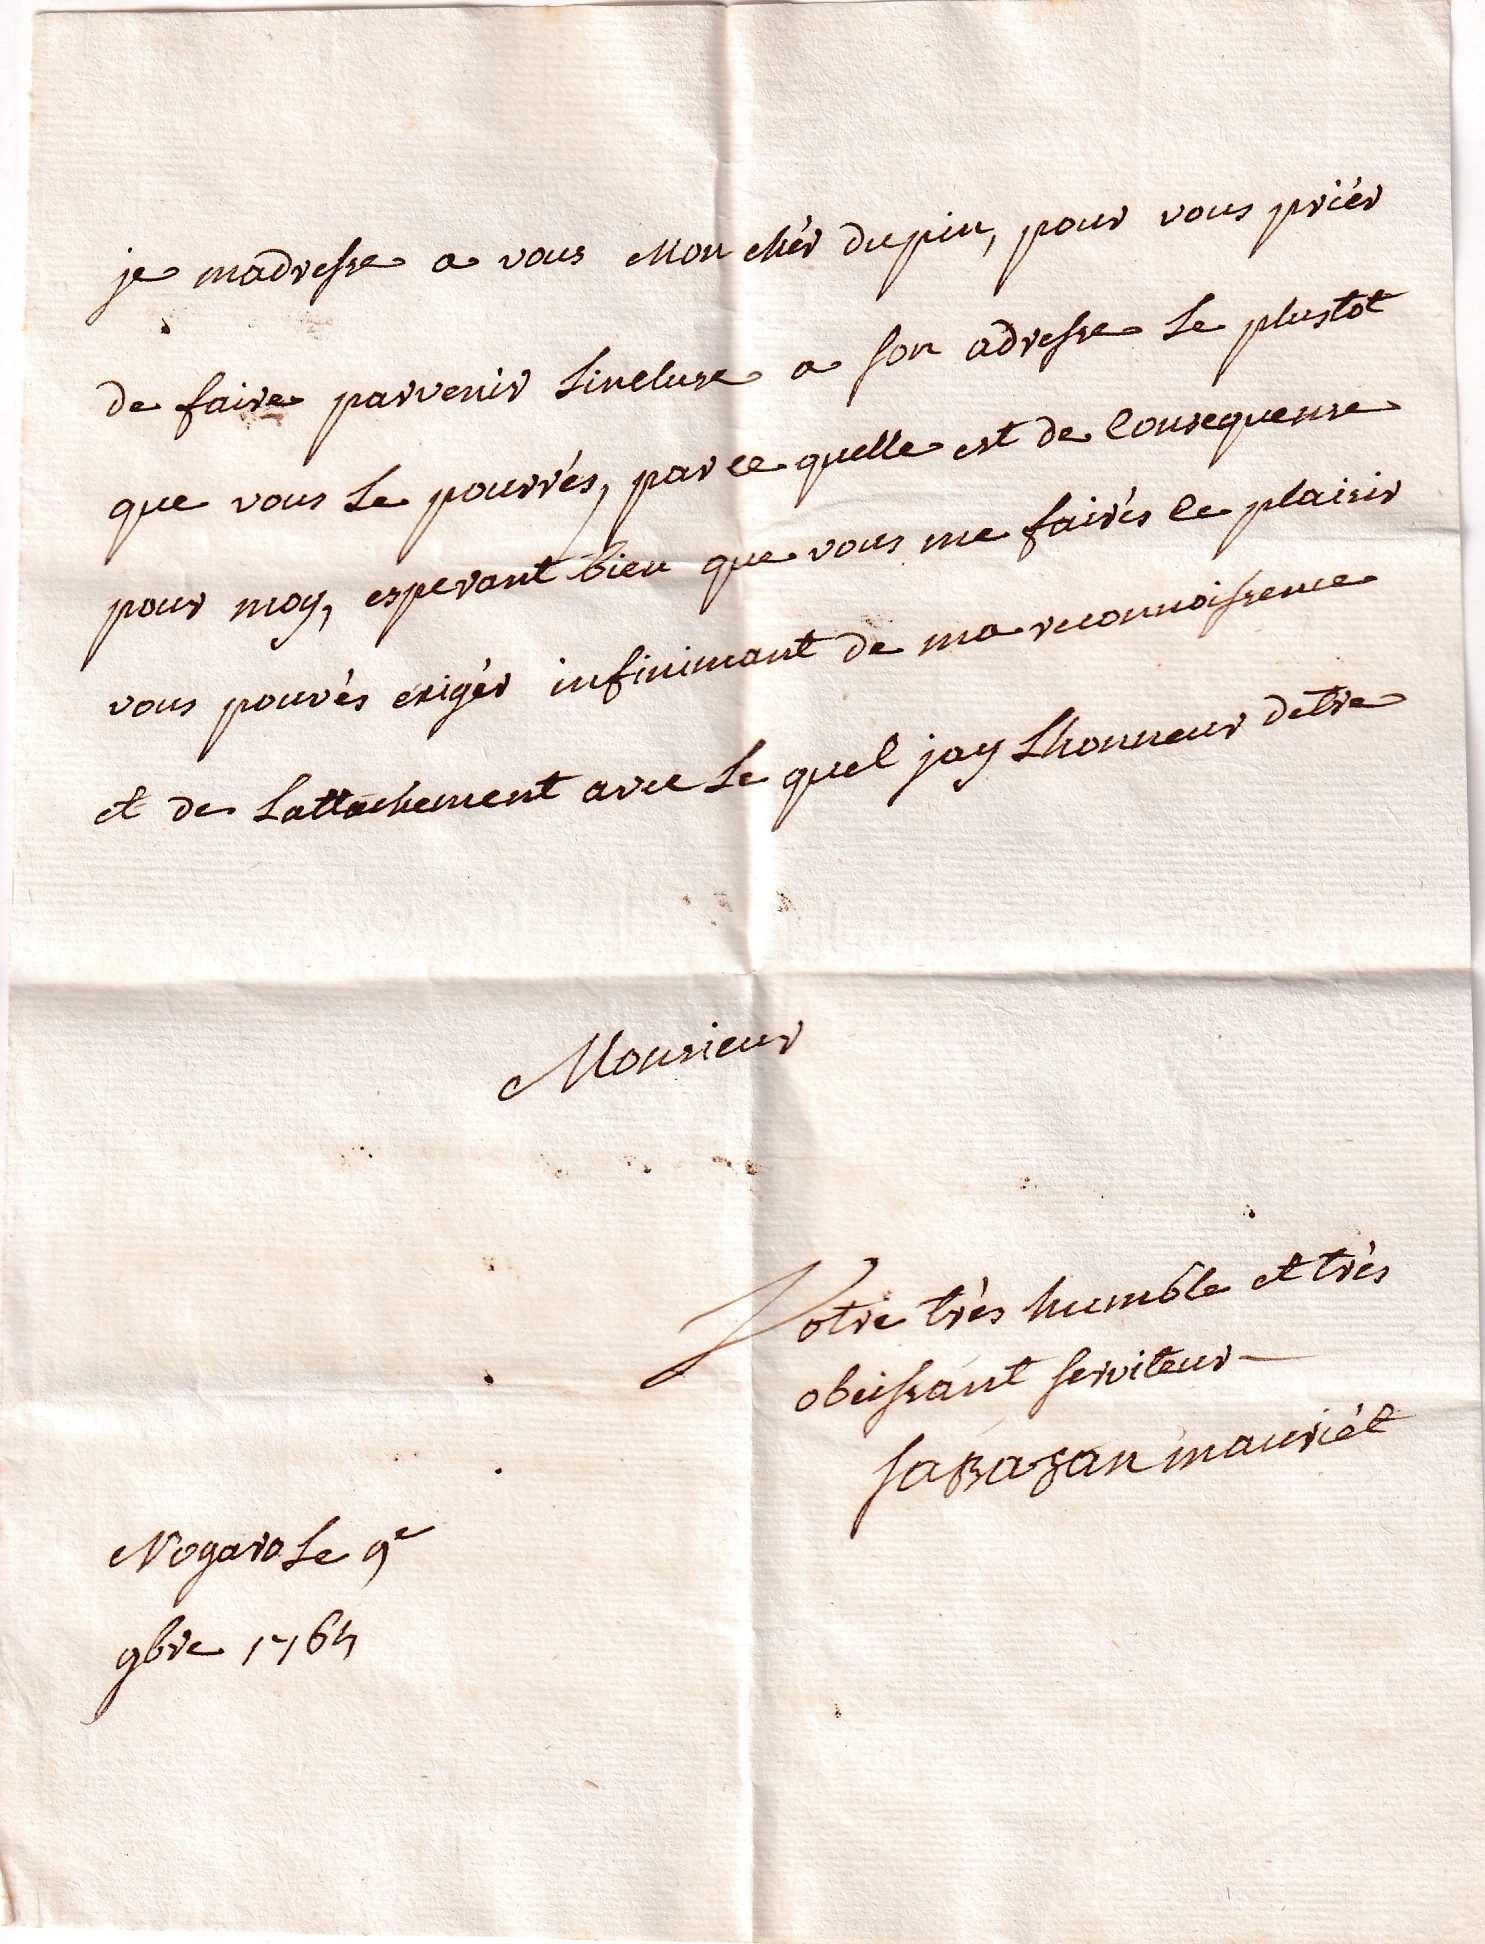 je madresse a vous Mon chér dupin, pour vous priér
de faire parvenir Lincluse a son adresse Le plustot
que vous Le pourrés, par ce quelle est de Consequense
pour moy, esperant bien que vous me fairés le plaisir
vous pouvés exigér infinimant de ma reconnoissence
et de Lattachement avec Le quel jay Lhonneur detre
Monsieur
Votre très humble et très
obeissant serviteur
mauriét
Nogaro Le 9e
9bre 1764